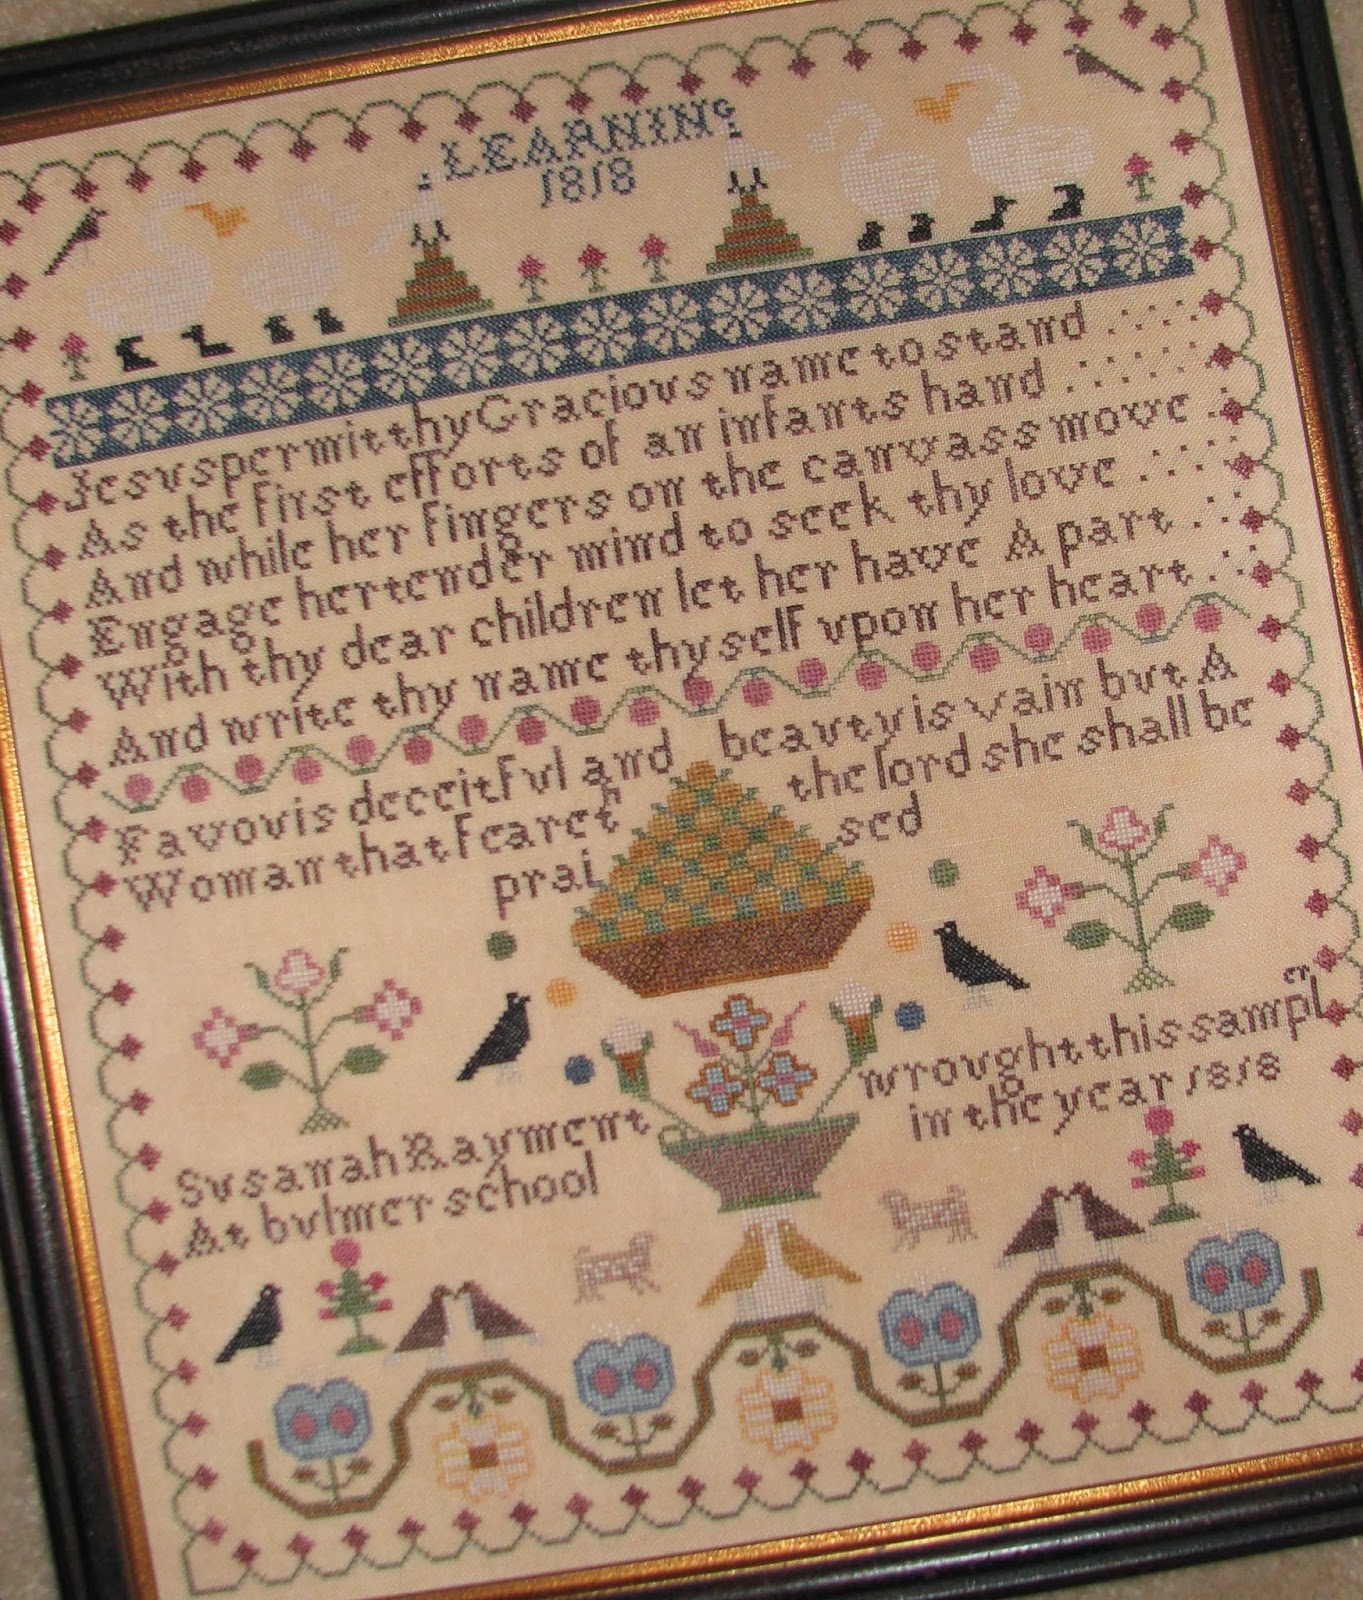 LEARNING
1818
Jesus permit thy Gracious name to stand
As the first efforts of an infants hand
And while her fingers on the canvass move
Engage her tender mind to seek thy love
With thy dear children let her have A part
And write thy name thyself upon her heart
Favou is deceitful and beauty is vain but A
Woman that feareth the lord she shall be
prai sed
Susanah Rayment wrought this sampler
At bulmer school in the year 1818